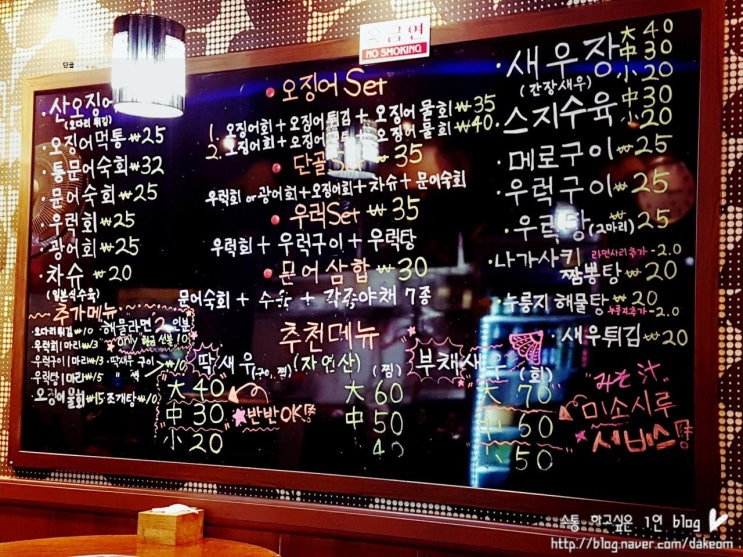 금연
NO SMOKING
단골
· 산오징어
(오다리 튀김)
· 오징어먹통 ₩25
· 통문어숙회 ₩32
· 문어숙회 ₩25
· 우럭회 ₩25
· 광어회 ₩25
· 차슈 ₩20
(일본식수육)
추가메뉴
· 오다리튀김 ₩10
· 우럭회1마리 ₩13
우럭구이1마리 ₩13
우럭탕1마리 ₩15
오징어물회 ₩15
· 해물라면 2인분
only 현금 선불 10
· 딱새우 구이 ₩10
찜
조개탕 ₩10
· 오징어 Set
1. 오징어회 + 오징어튀김 + 오징어 물회 ₩35
2. 오징어회 + 오징어 물회 ₩40
· 단골 35
우럭회 or 광어회 + 오징어회 + 차슈 + 문어숙회
· 우럭Set ₩35
우럭회 + 우럭구이 + 우럭탕
· 문어삼합 ₩30
문어숙회 + 수육 + 각종야채 7종
추천메뉴
딱새우 (구이, 찜)
大 40
中 30
小 20
반반OK
(자연산) (찜)
大 60
中 50
40
부채새우 (회)
大 70
中 60
小 50
· 새우장
(간장새우)
大 40
中 30
小 20
· 스지수육
中 30
小 20
· 메로구이 ₩25
· 우럭구이 ₩25
· 우럭탕 (2마리) ₩25
· 나가사키 짬뽕탕 ₩20
라면사리추가 -2.0
· 누룽지 해물탕 ₩20
누룽지추가 -2.0
· 새우튀김 ₩20
"みそ汁"
미소시루
서비스
소통 하고싶은 1인 blog
http://blog.naver.com/dakeom